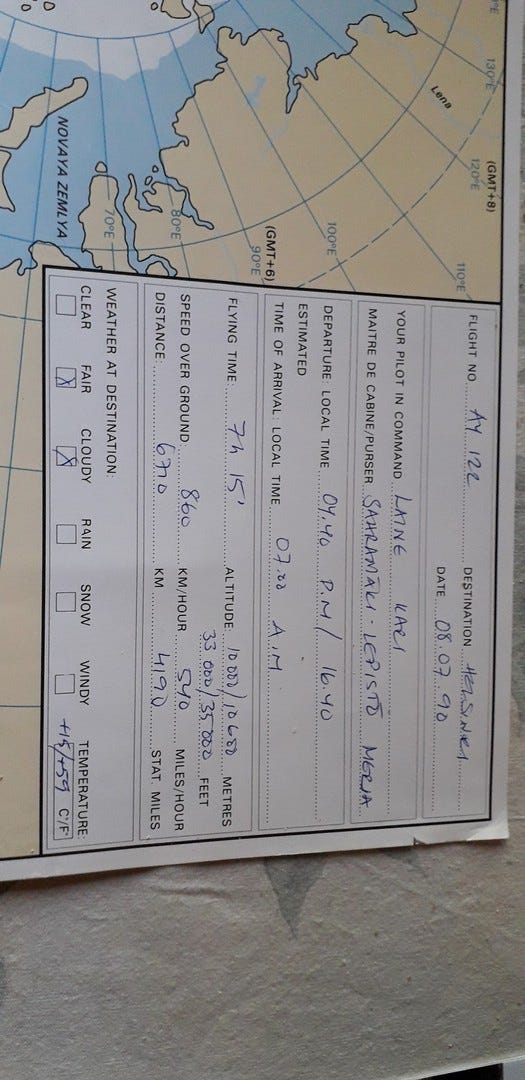 130°E
Lena
(GMT+8)
120°E
110°E
100°E
(GMT+6)
90°E
80°E
70°E
NOVAYA ZEMLYA
FLIGHT NO. AY 122 DESTINATION HELSINKI
DATE 08.07.90
YOUR PILOT IN COMMAND LAINE KARI
MAITRE DE CABINE/PURSER SAHRAMÄKI-LEPISTÖ MERJA
DEPARTURE: LOCAL TIME 04.40 P.M/ 16.40
ESTIMATED
TIME OF ARRIVAL: LOCAL TIME 07.00 A.M
FLYING TIME: 7h 15' ALTITUDE: 10 000/10 600 METRES
33 000/35 000 FEET
SPEED OVER GROUND: 860 KM/HOUR 540 MILES/HOUR
DISTANCE: 6710 KM 4190 STAT MILES
WEATHER AT DESTINATION:
CLEAR FAIR CLOUDY RAIN SNOW WINDY TEMPERATURE:
X X +15/+59 C/F